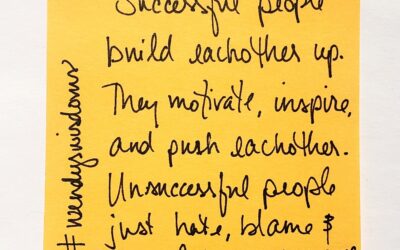 Successful people
build eachother up.
They motivate, inspire,
and push eachother.
Unsuccessful people
just hate, blame &
#wendyswisdoms